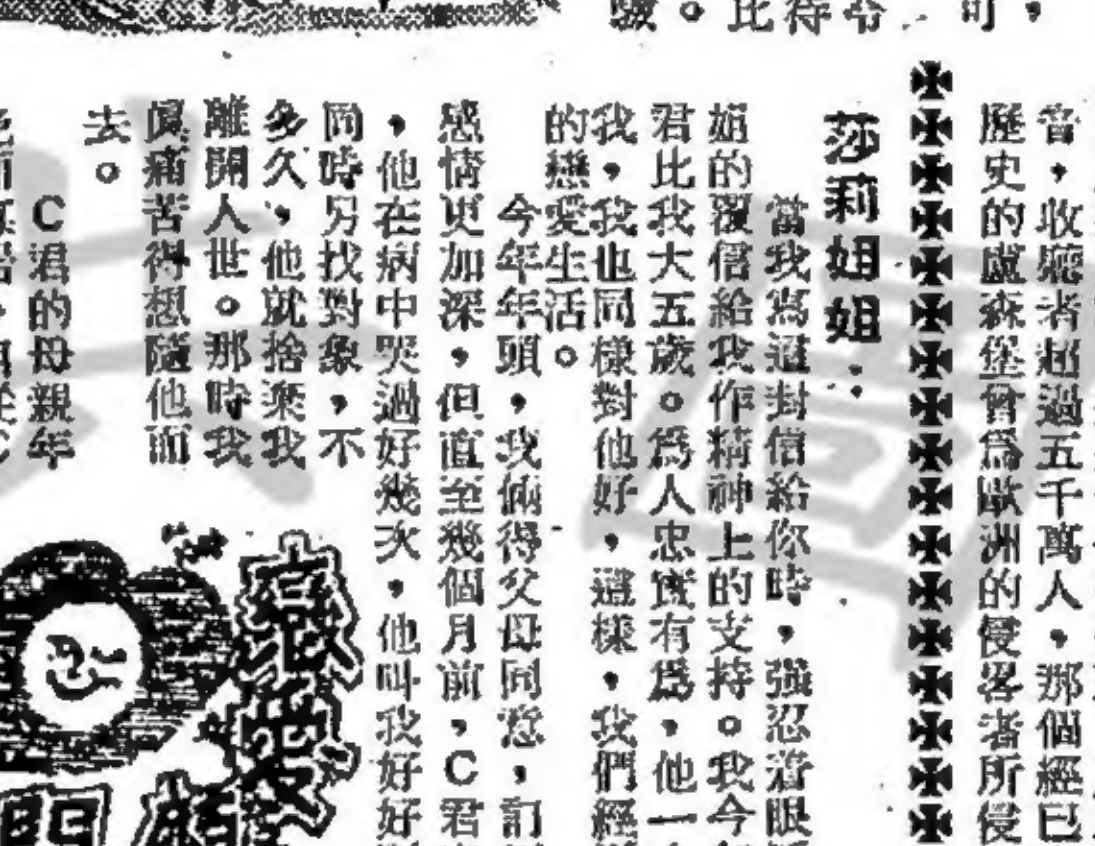 音，收聽者超過五千萬人，那個經已
歷史的盧森堡會爲歐洲的侵畧者所侵
莎莉姐姐：
當我寫這封信給你時，强忍着眼
姐的覆信給我作精神上的支持。我今
君比我大五歲。爲人忠實有爲，他一
我，我也同樣對他好，這樣，我們經
的戀愛生活。
今年年頭，我倆得父母同意，訂
感情更加深，但直至幾個月前，C君
，他在病中哭過好幾次，他叫我好好
同時另找對象，不
多久，他就捨棄我
離開人世。那時我
眞痛苦得想隨他而
去。
C君的母親年